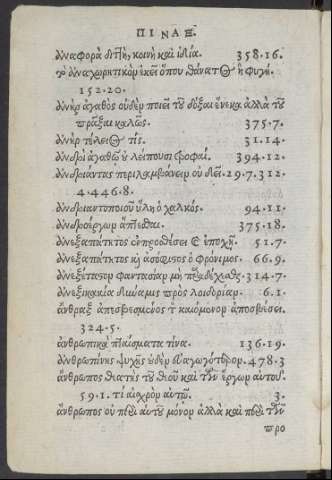 ΠΙΝΑΞ.
ἀναφορὰ διττὴ, κοινὴ καὶ ἰδία. 358.16.
τὸ ἀναχωρητικὸν ἐκεῖ ὅπου θάνατος ἢ φυγή.
152.20.
ἀνὴρ ἀγαθὸς οὐδὲν ποιεῖ τοῦ δόξαι ἕνεκα ἀλλὰ τοῦ
πρᾶξαι καλῶς. 375.7.
ἀνὴρ τέλειος τίς. 31.14.
ἀνδρὶ ἀγαθῷ οὐ λείπουσι τροφαί. 394.12.
ἀνδριάντας περιλαμβάνειν οὐ δεῖ. 29.7.312.
4.446.8.
ἀνδριαντοποιοῦ ὕλη ὁ χαλκός. 94.11.
375.18.
ἀνεξαπάτητος ἐν προθέσει καὶ ἐποχῇ. 51.7.
ἀνεξαπάτητος καὶ ὁ φρόνιμος. 66.9.
ἀνεξέταστον φαντασίαν μὴ παραδέχεσθαι. 314.7.
ἀνεξικακία δύναμις πρὸς λοιδορίαν. 6.1.
ἄνθραξ ἀπεσβεσμένος τὸν καιόμενον ἀποσβέσει.
324.5.
ἀνθρωπικὰ πταίσματα τίνα. 136.19.
ἀνθρωπίνης ψυχῆς οὐδὲν εὐαγωγότερον. 478.3
ἄνθρωπος θεατὴς τοῦ θεοῦ καὶ τῶν ἔργων αὐτοῦ.
59.1. τί αἰσχρὸν αὐτῷ. 3.
ἄνθρωπος οὐ περὶ αὐτοῦ μόνον ἀλλὰ καὶ περὶ τῶν
προ